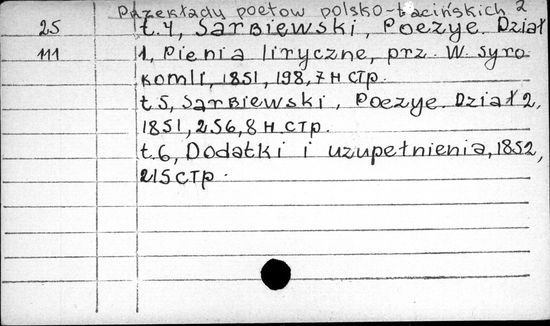 Przekłady poetow polsko-łacińskich 2
25 t.4, Sarbiewski, Poezye. Dział
111 1, Pienia liryczne, prz. W. Syro
komli, 1851, 198, 7 н стр.
t 5, Sarbiewski, Poezye. Dział 2,
1851, 256, 8 н стр.
t.6, Dodatki i uzupełnienia, 1852,
215 стр.